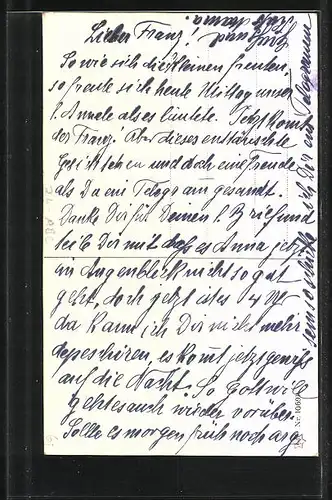 Lieber Franz!
So wie sich die Kleinen freuten,
so freute sich heute Mittag unser
l. Annele als es läutete. Jetzt komt
der Franz! Aber dieses enttäuschte
Gesichtchen und doch eine Freude
als Da ein Telegram gesamt.
Danke Dir für Deinen l. Brief und
teile Dir mit dass es Anna jetzt
im Augenblick nicht so gut
geht, doch jetzt ist es 4 Uhr
da kann ich Dir nicht mehr
depeschiren, es komt jetzt
auf die Nacht. So Gott will
geht es auch wieder vorüber.
Sollte es morgen früh noch arg
sein so schicke ich Dir ein Telegramm
Gruß und